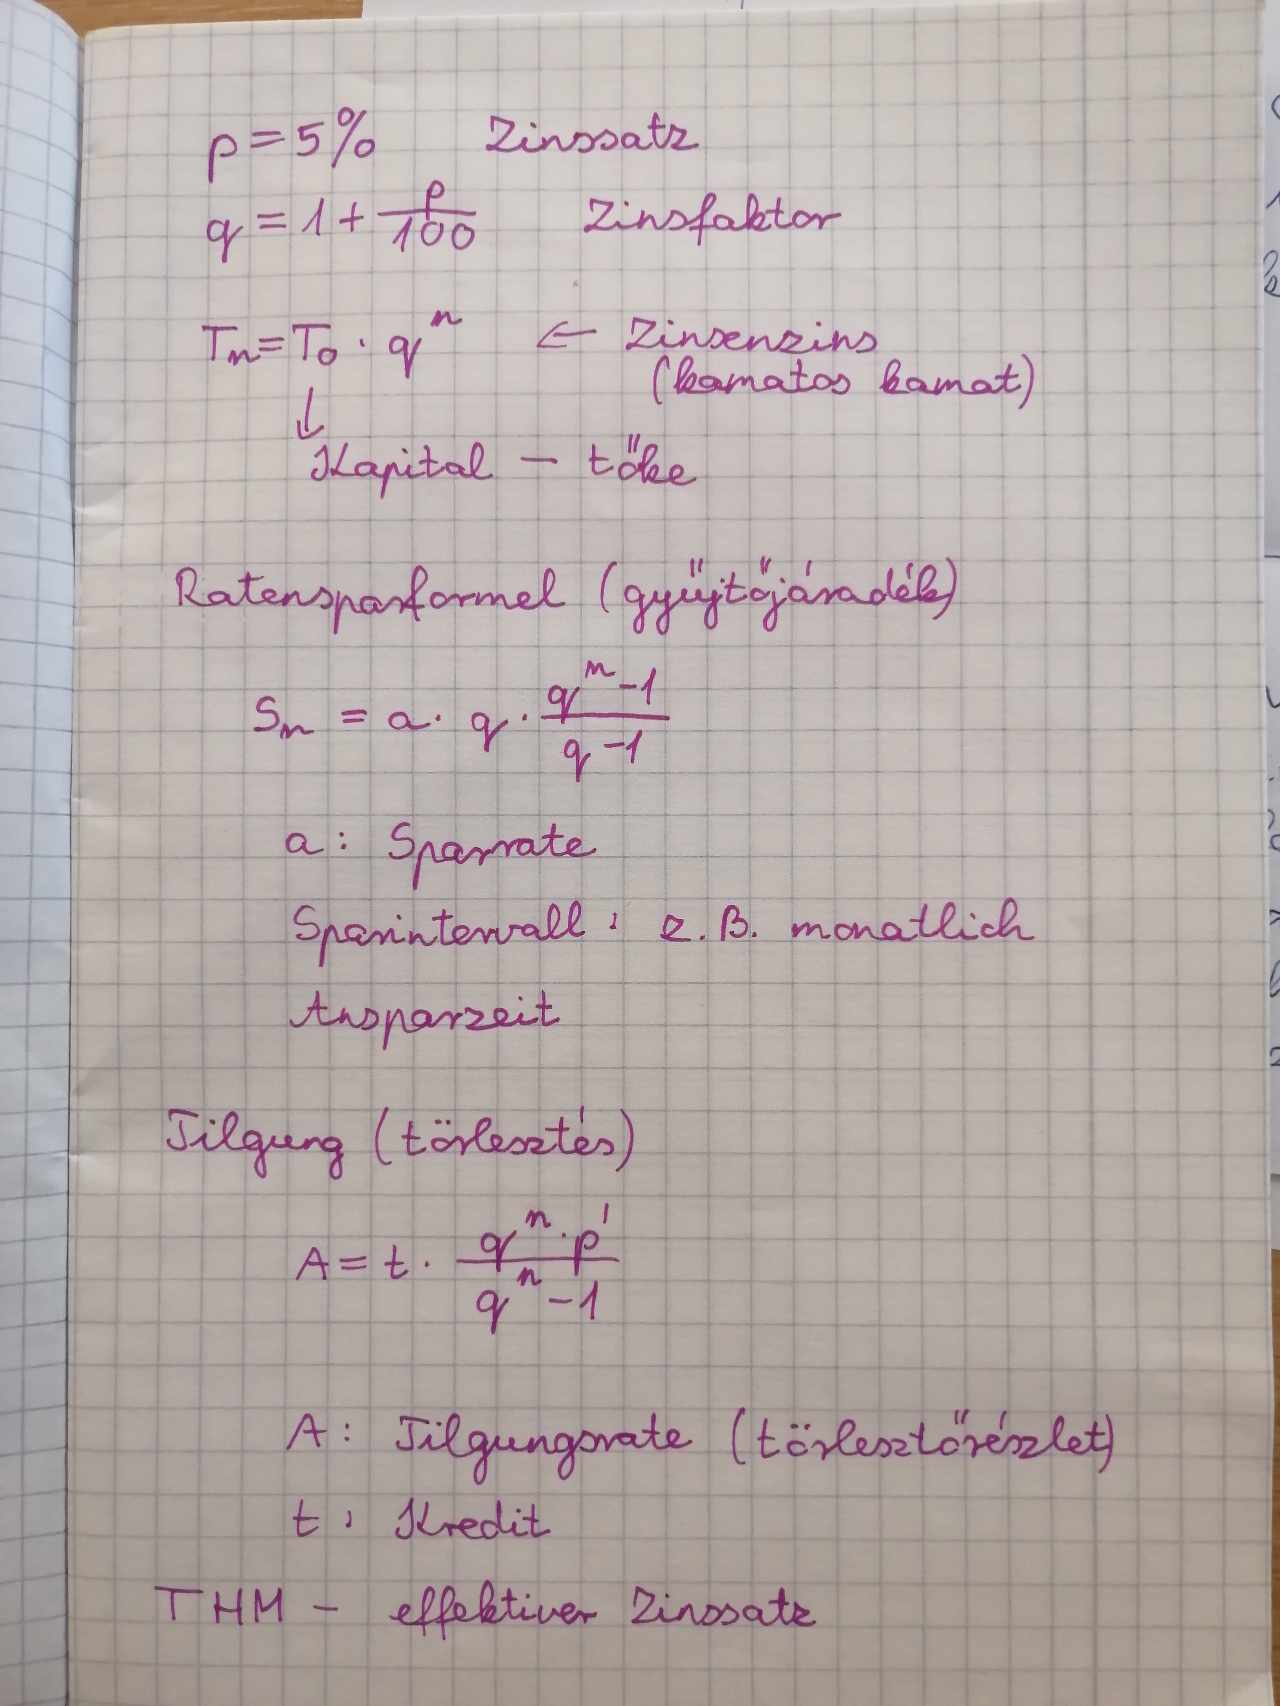 p = 5% Zinssatz
q = 1 + p/100 Zinsfaktor
Tn = T0 · q^n ← Zinsenzins
(kamatos kamat)
↓
Kapital – tőke
Ratensparformel (gyűjtőjáradék)
Sn = a · q · (q^n - 1)/(q - 1)
a: Sparrate
Sparintervall: z.B. monatlich
Ansparzeit
Tilgung (törlesztés)
A = t · (q^n · p')/(q^n - 1)
A: Tilgungsrate (törlesztőrészlet)
t: Kredit
THM – effektiver Zinssatz